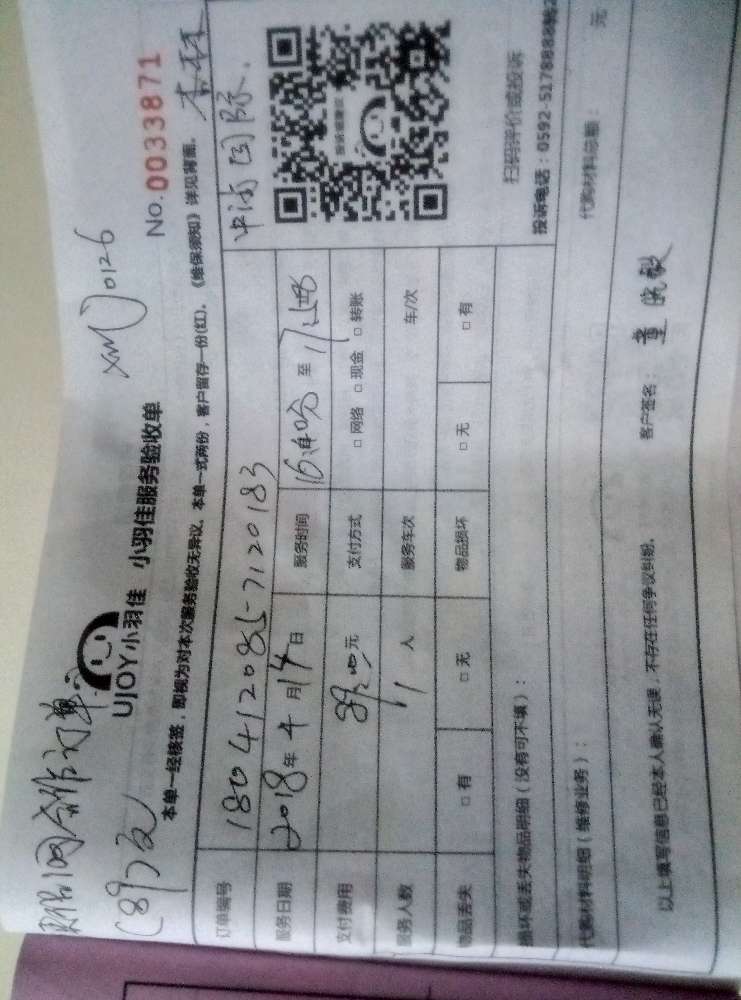 合作订单
(89)元
XM 0126
UJOY小羽佳 小羽佳服务验收单
No.0033871
本单一经核签，即视为对本次服务验收无异议。本单一式两份，客户留存一份(红)。《维保须知》详见背面。
订单编号 180412085-7120183
国际
服务日期 2018年4月14日 服务时间 16 至 17
支付费用 89.00元 支付方式 □网络 □现金 □转账
服务人数 1人 服务车次 车/次
物品丢失 □有 □无 物品损坏 □无 □有
扫码评价或投诉
投诉电话：0592-5178888转2
损坏或丢失物品明细（没有可不填）：
代购材料明细（维修业务）： 代购材料总额： 元
以上填写信息已经本人确认无误，不存在任何争议纠纷。 客户签名：